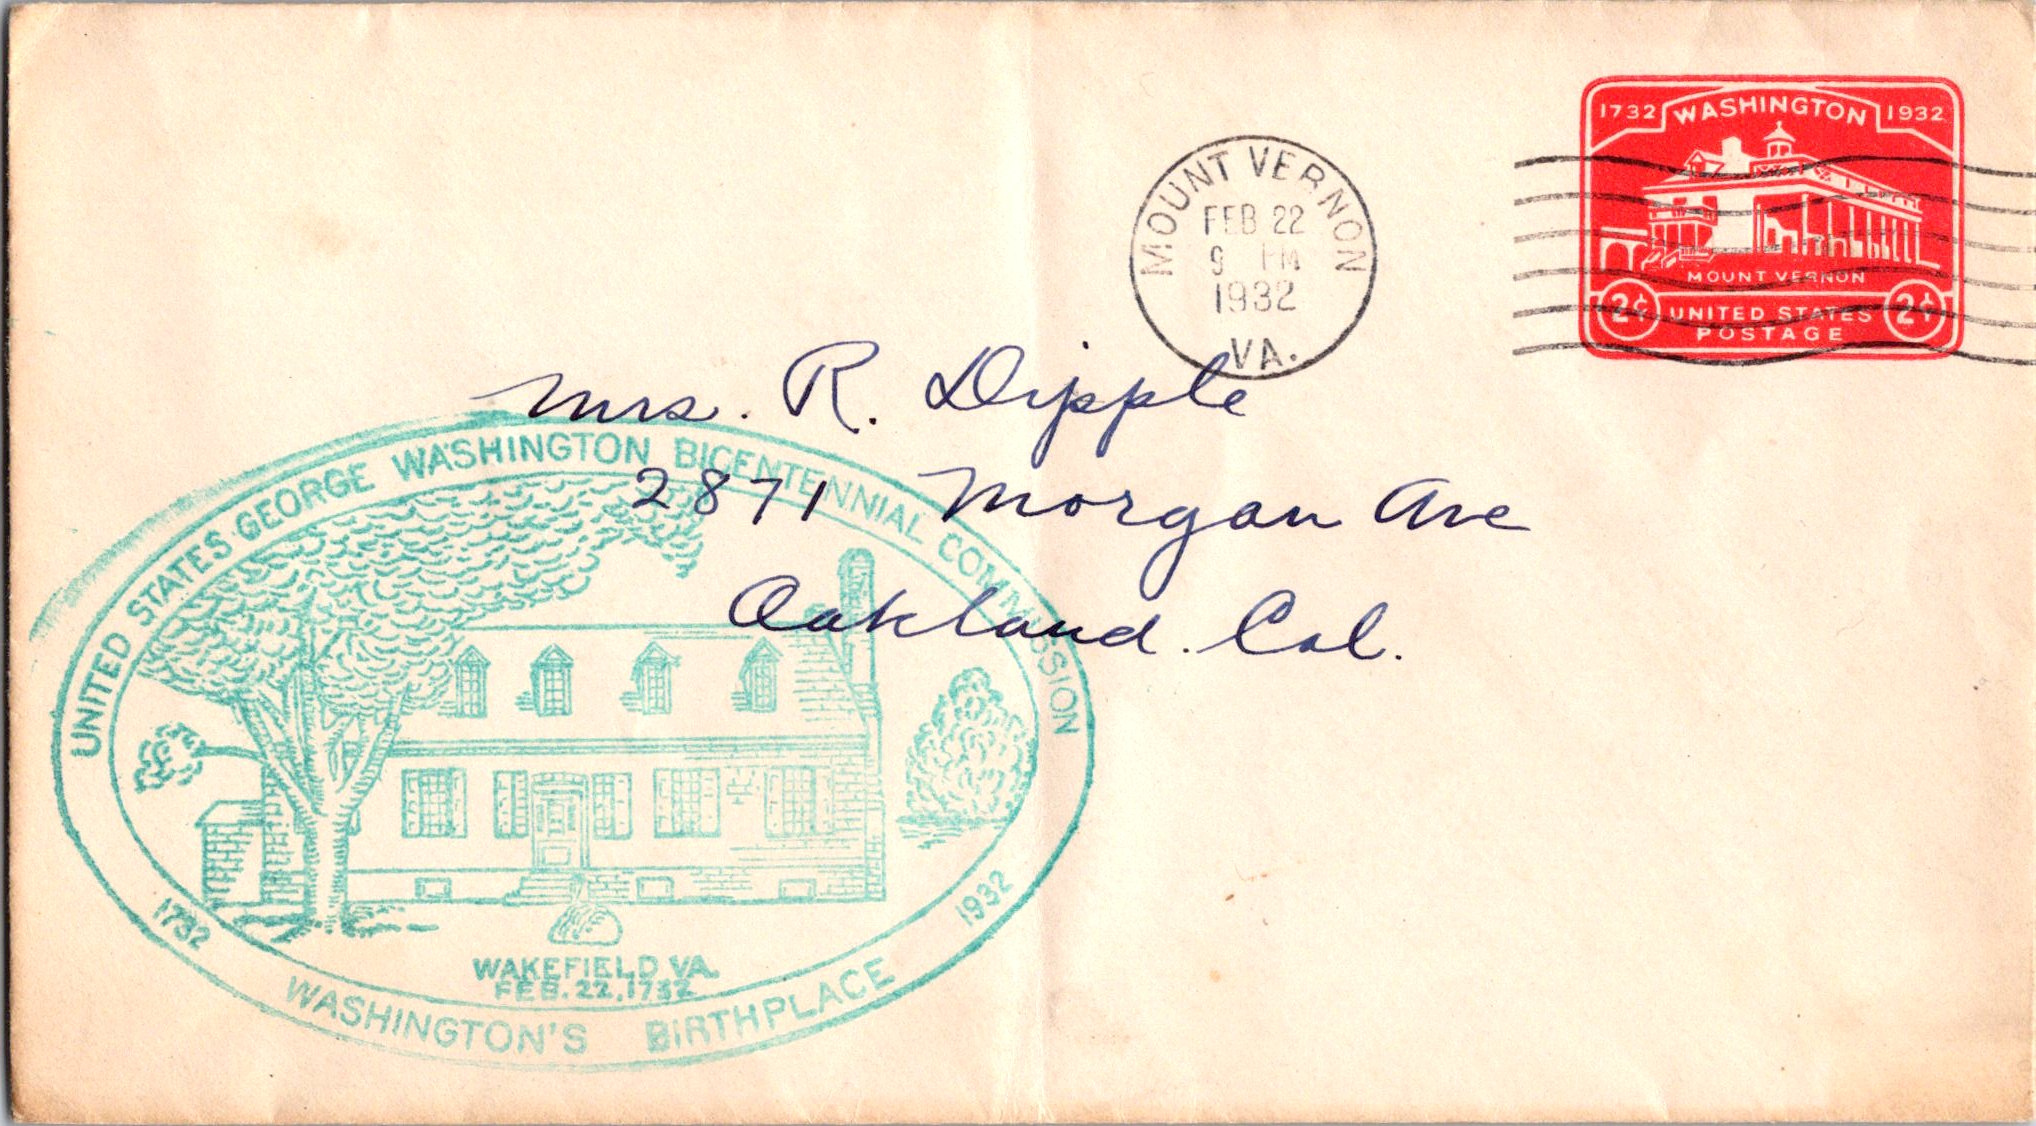 1732 WASHINGTON 1932
MOUNT VERNON
2¢ UNITED STATES 2¢
POSTAGE
MOUNT VERNON
FEB 22
9 PM
1932
VA.
Mrs. R. Dipple
2871 Morgan Ave
Oakland. Cal.
UNITED STATES GEORGE WASHINGTON BICENTENNIAL COMMISSION
1732 1932
WAKEFIELD, VA.
FEB. 22, 1732
WASHINGTON'S BIRTHPLACE